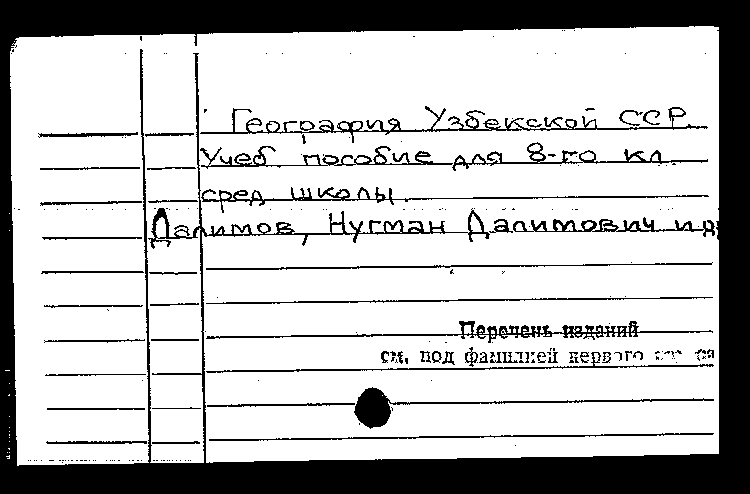 География Узбекской ССР.
Учеб. пособие для 8-го кл.
сред школы.
Далимов, Нугман Далимович и др
Перечень изданий
см. под фамилией первого